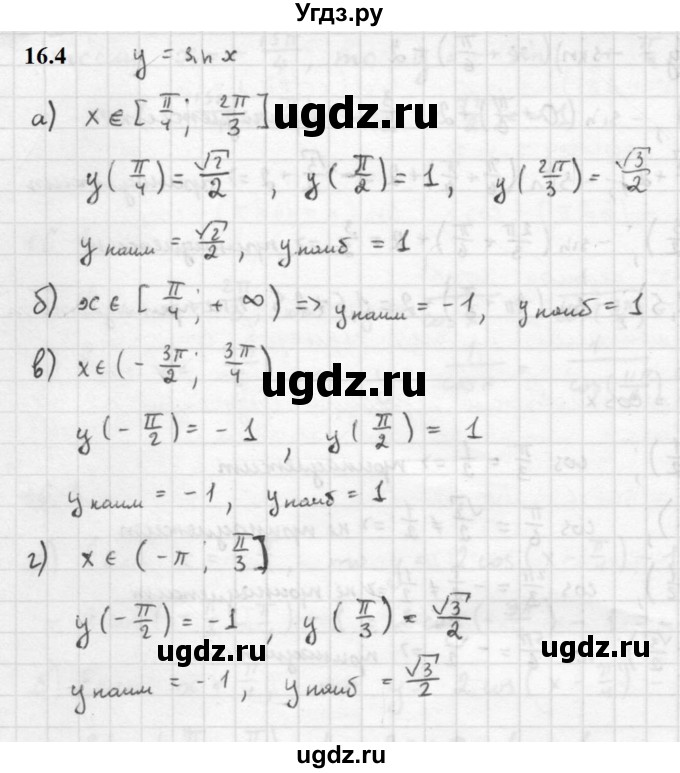 Угдз.ру
16.4 y = sin x
а) x ∈ [π/4; 2π/3]
ugdz.ru
y(π/4) = √2/2, y(π/2) = 1, y(2π/3) = √3/2
ugdz.ru
y наим = √2/2, y наиб = 1
б) x ∈ [π/4; +∞) => y наим = -1, y наиб = 1
в) x ∈ (-3π/2; 3π/4)
ugdz.ru
y(-π/2) = -1, y(π/2) = 1
ugdz.ru
y наим = -1, y наиб = 1
г) x ∈ (-π; π/3]
y(-π/2) = -1, y(π/3) = √3/2
ugdz.ru
ugdz.ru
y наим = -1, y наиб = √3/2
ugdz.ru